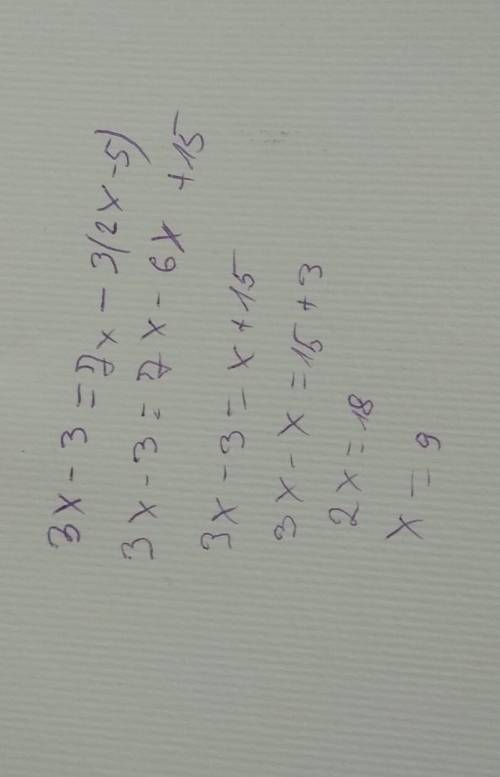 3x - 3 = 7x - 3(2x - 5)
3x - 3 = 7x - 6x + 15
3x - 3 = x + 15
3x - x = 15 + 3
2x = 18
x = 9